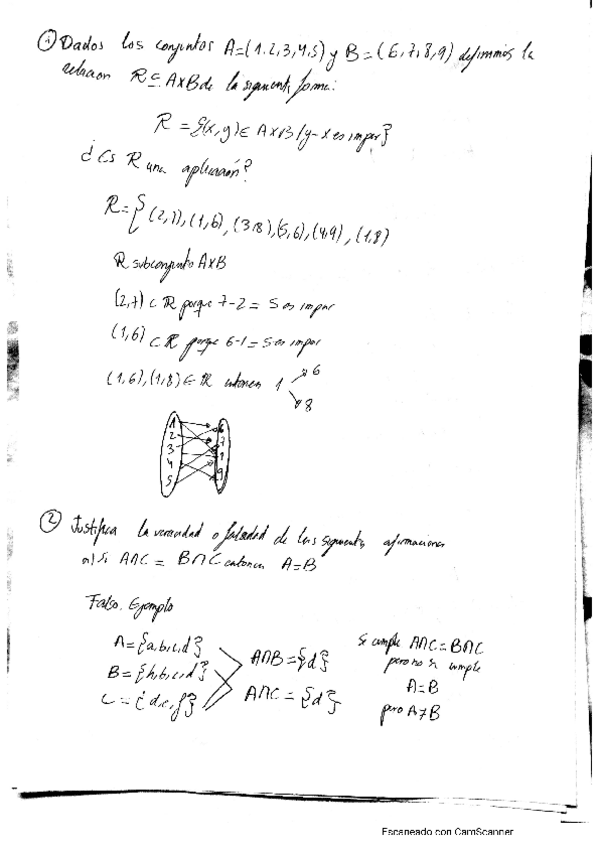 ① Dados los conjuntos A=(1.2,3,4,5) y B=(6,7,8,9) definimos la
relacion R ⊆ AxB de la siguiente forma:
R = {(x,y) ∈ AxB / y-x es impar}
¿Es R una aplicación?
R = { (2,7), (1,6), (3,8), (5,6), (4,9), (1,8)
R subconjunto AxB
(2,7) ⊂ R porque 7-2 = 5 es impar
(1,6) ⊂ R porque 6-1 = 5 es impar
(1,6), (1,8) ∈ R entonces 1
6
8
1 6
2 7
3
4 9
5
② Justifica la veracidad o falsedad de las siguientes afirmaciones
a) Si A∩C = B∩C entonces A=B
Falso. Ejemplo
A = {a,b,c,d}
B = {h,b,c,d}
C = {d,e,f}
A∩B = {d}
A∩C = {d}
Se cumple A∩C = B∩C
pero no se cumple
A=B
pero A≠B
Escaneado con CamScanner